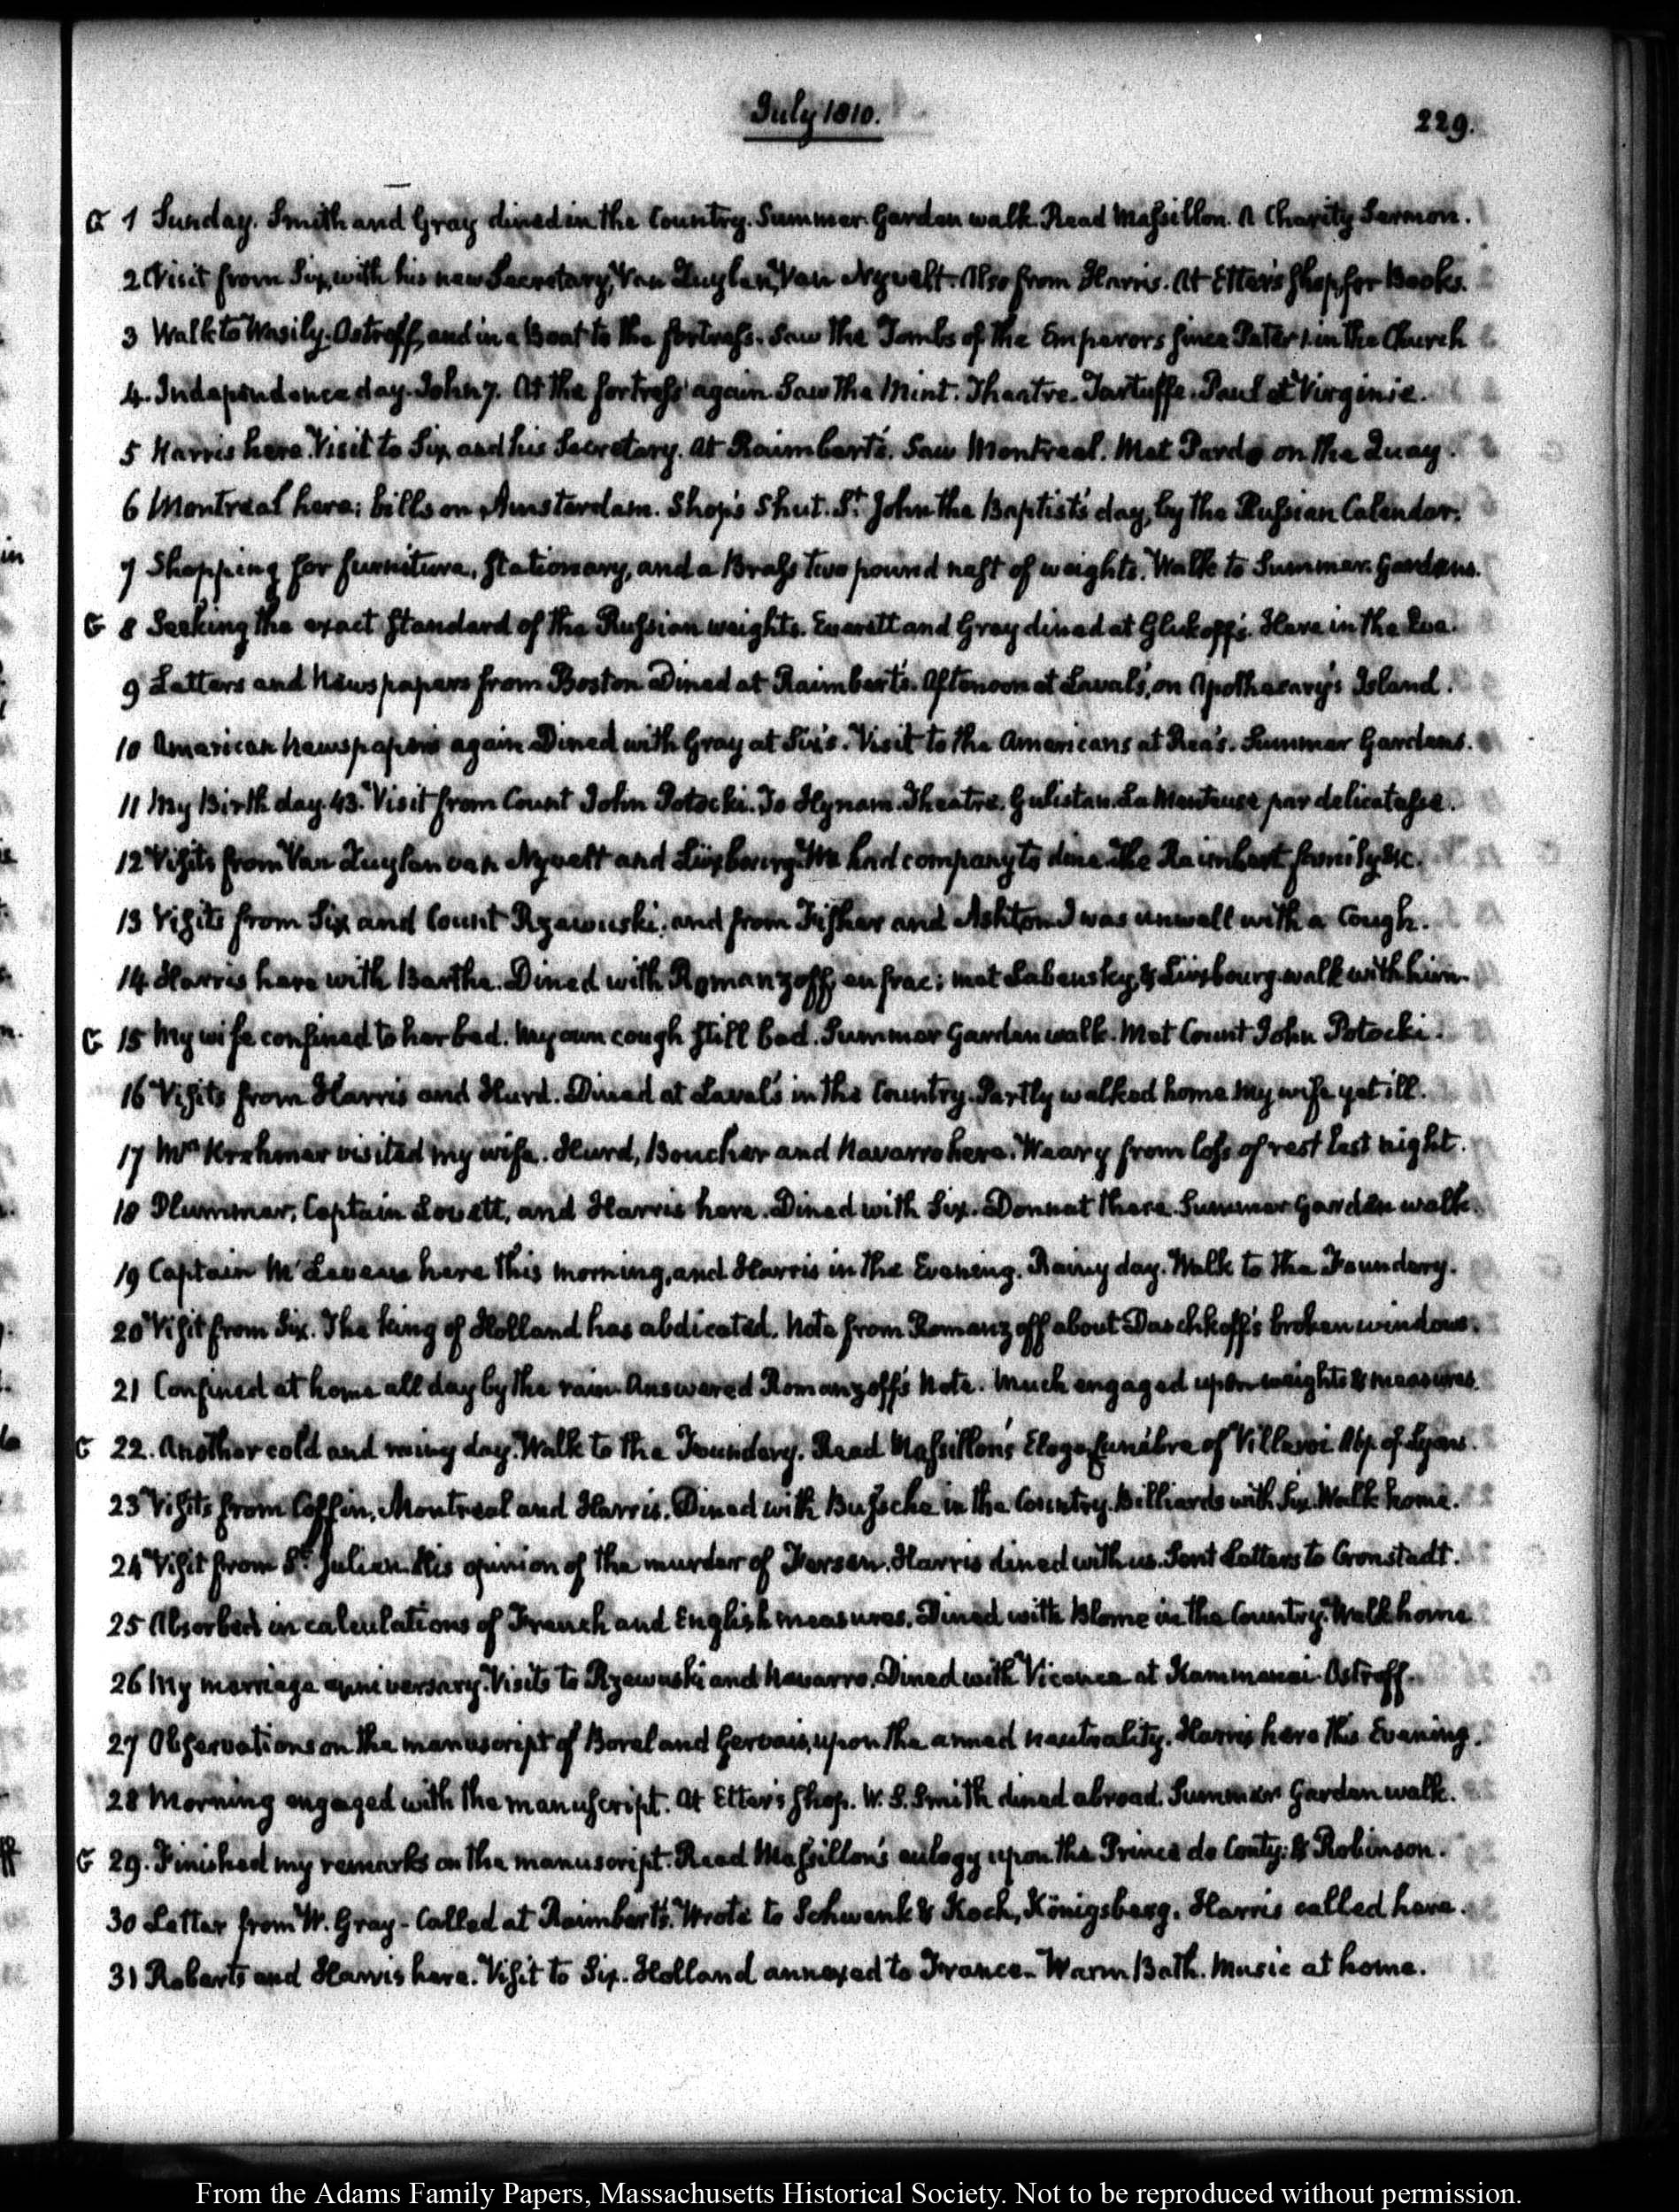 July 1810.
229.
G 1 Sunday. Smith and Gray dined in the Country. Summer Garden walk. Read Massillon. A Charity Sermon.
2 Visit from Six, with his new Secretary, Van Zuylen, Van Nyvelt. Also from Harris. At Etter's shop, for Books.
3 Walk to Wasily-Ostroff, and in a Boat to the fortress. Saw the Tombs of the Emperors since Peter 1. in the Church
4. Independence day. John 7. At the fortress again. Saw the Mint. Theatre. Tartuffe. Paul et Virginie.
5 Harris here. Visit to Six, and his Secretary. At Raimbert's. Saw Montreal. Met Pardo on the Quay.
6 Montreal here; bills on Amsterdam. Shops shut. St. John the Baptist's day, by the Russian Calendar.
7 Shopping for furniture, stationary, and a Brass two pound nest of weights. Walk to Summer Gardens.
G 8 Seeking the exact standard of the Russian weights. Everett and Gray dined at Glukoff's. Here in the Eve.
9 Letters and Newspapers from Boston Dined at Raimbert's. Aftenoon at Laval's, on Apothecary's Island.
10 American Newspapers again Dined with Gray at Six's. Visit to the Americans at Rea's. Summer Gardens.
11 My Birth day. 43. Visit from Count John Potocki. To Hynam. Theatre. Gulistan. La Menteuse par delicatesse.
12 Visits from Van Zuylen van Nyvelt and Lüxbourg. We had company to dine. The Raimbert family &c.
13 Visits from Six and Count Rzewuski; and from Fisher and Ashton I was unwell with a Cough.
14 Harris here with Barthe. Dined with Romanzoff, en frac; met Labensky, & Lüxbourg. walk with him.
G 15 My wife confined to her bed. My own cough still bad. Summer Garden walk. Met Count John Potocki.
16 Visits from Harris and Hurd. Dined at Laval's in the Country. Partly walked home My wife yet ill.
17 Mrs Krehmer visited my wife. Hurd, Boucher and Navarro here. Weary from loss of rest last night.
18 Plummer, Captain Lovett, and Harris here. Dined with Six. Donnat there. Summer Garden walk.
19 Captain here this morning, and Harris in the Evening. Rainy day. Walk to the Foundery.
20 Visit from Six. The king of Holland has abdicated. Note from Romanzoff about Daschkoff's broken windows.
21 Confined at home all day by the rain. Answered Romanzoff's Note. Much engaged upon weights & measures.
G 22. Another cold and rainy day. Walk to the Foundery. Read Massillon's Eloge funébre of Villeroi Abp. of Lyons.
23 Visits from Coffin, Montreal and Harris. Dined with Bussche in the Country. Billiards with Six. Walk home.
24 Visit from St. Julien. His opinion of the murder of Fersen. Harris dined with us. Sent Letters to Cronstadt.
25 Absorbed in calculations of French and English measures. Dined with Blome in the Country. Walk home
26 My marriage anniversary. Visits to Rzewuski and Navarro. Dined with Vicence at Kammenoi-Ostroff.
27 Observations on the manuscript of Borel and Gervais, upon the armed neutrality. Harris here this Evening.
28 Morning engaged with the manuscript. At Etter's shop. W. S. Smith dined abroad. Summer Garden walk.
G 29. Finished my remarks on the manuscript. Read Massillon's eulogy upon the Prince de Conty: & Robinson.
30 Letter from W. Gray - Called at Raimbert's. Wrote to Schwenk & Koch, Königsberg. Harris called here.
31 Roberts and Harris here. Visit to Six. Holland annexed to France. Warm Bath. Music at home.
From the Adams Family Papers, Massachusetts Historical Society. Not to be reproduced without permission.